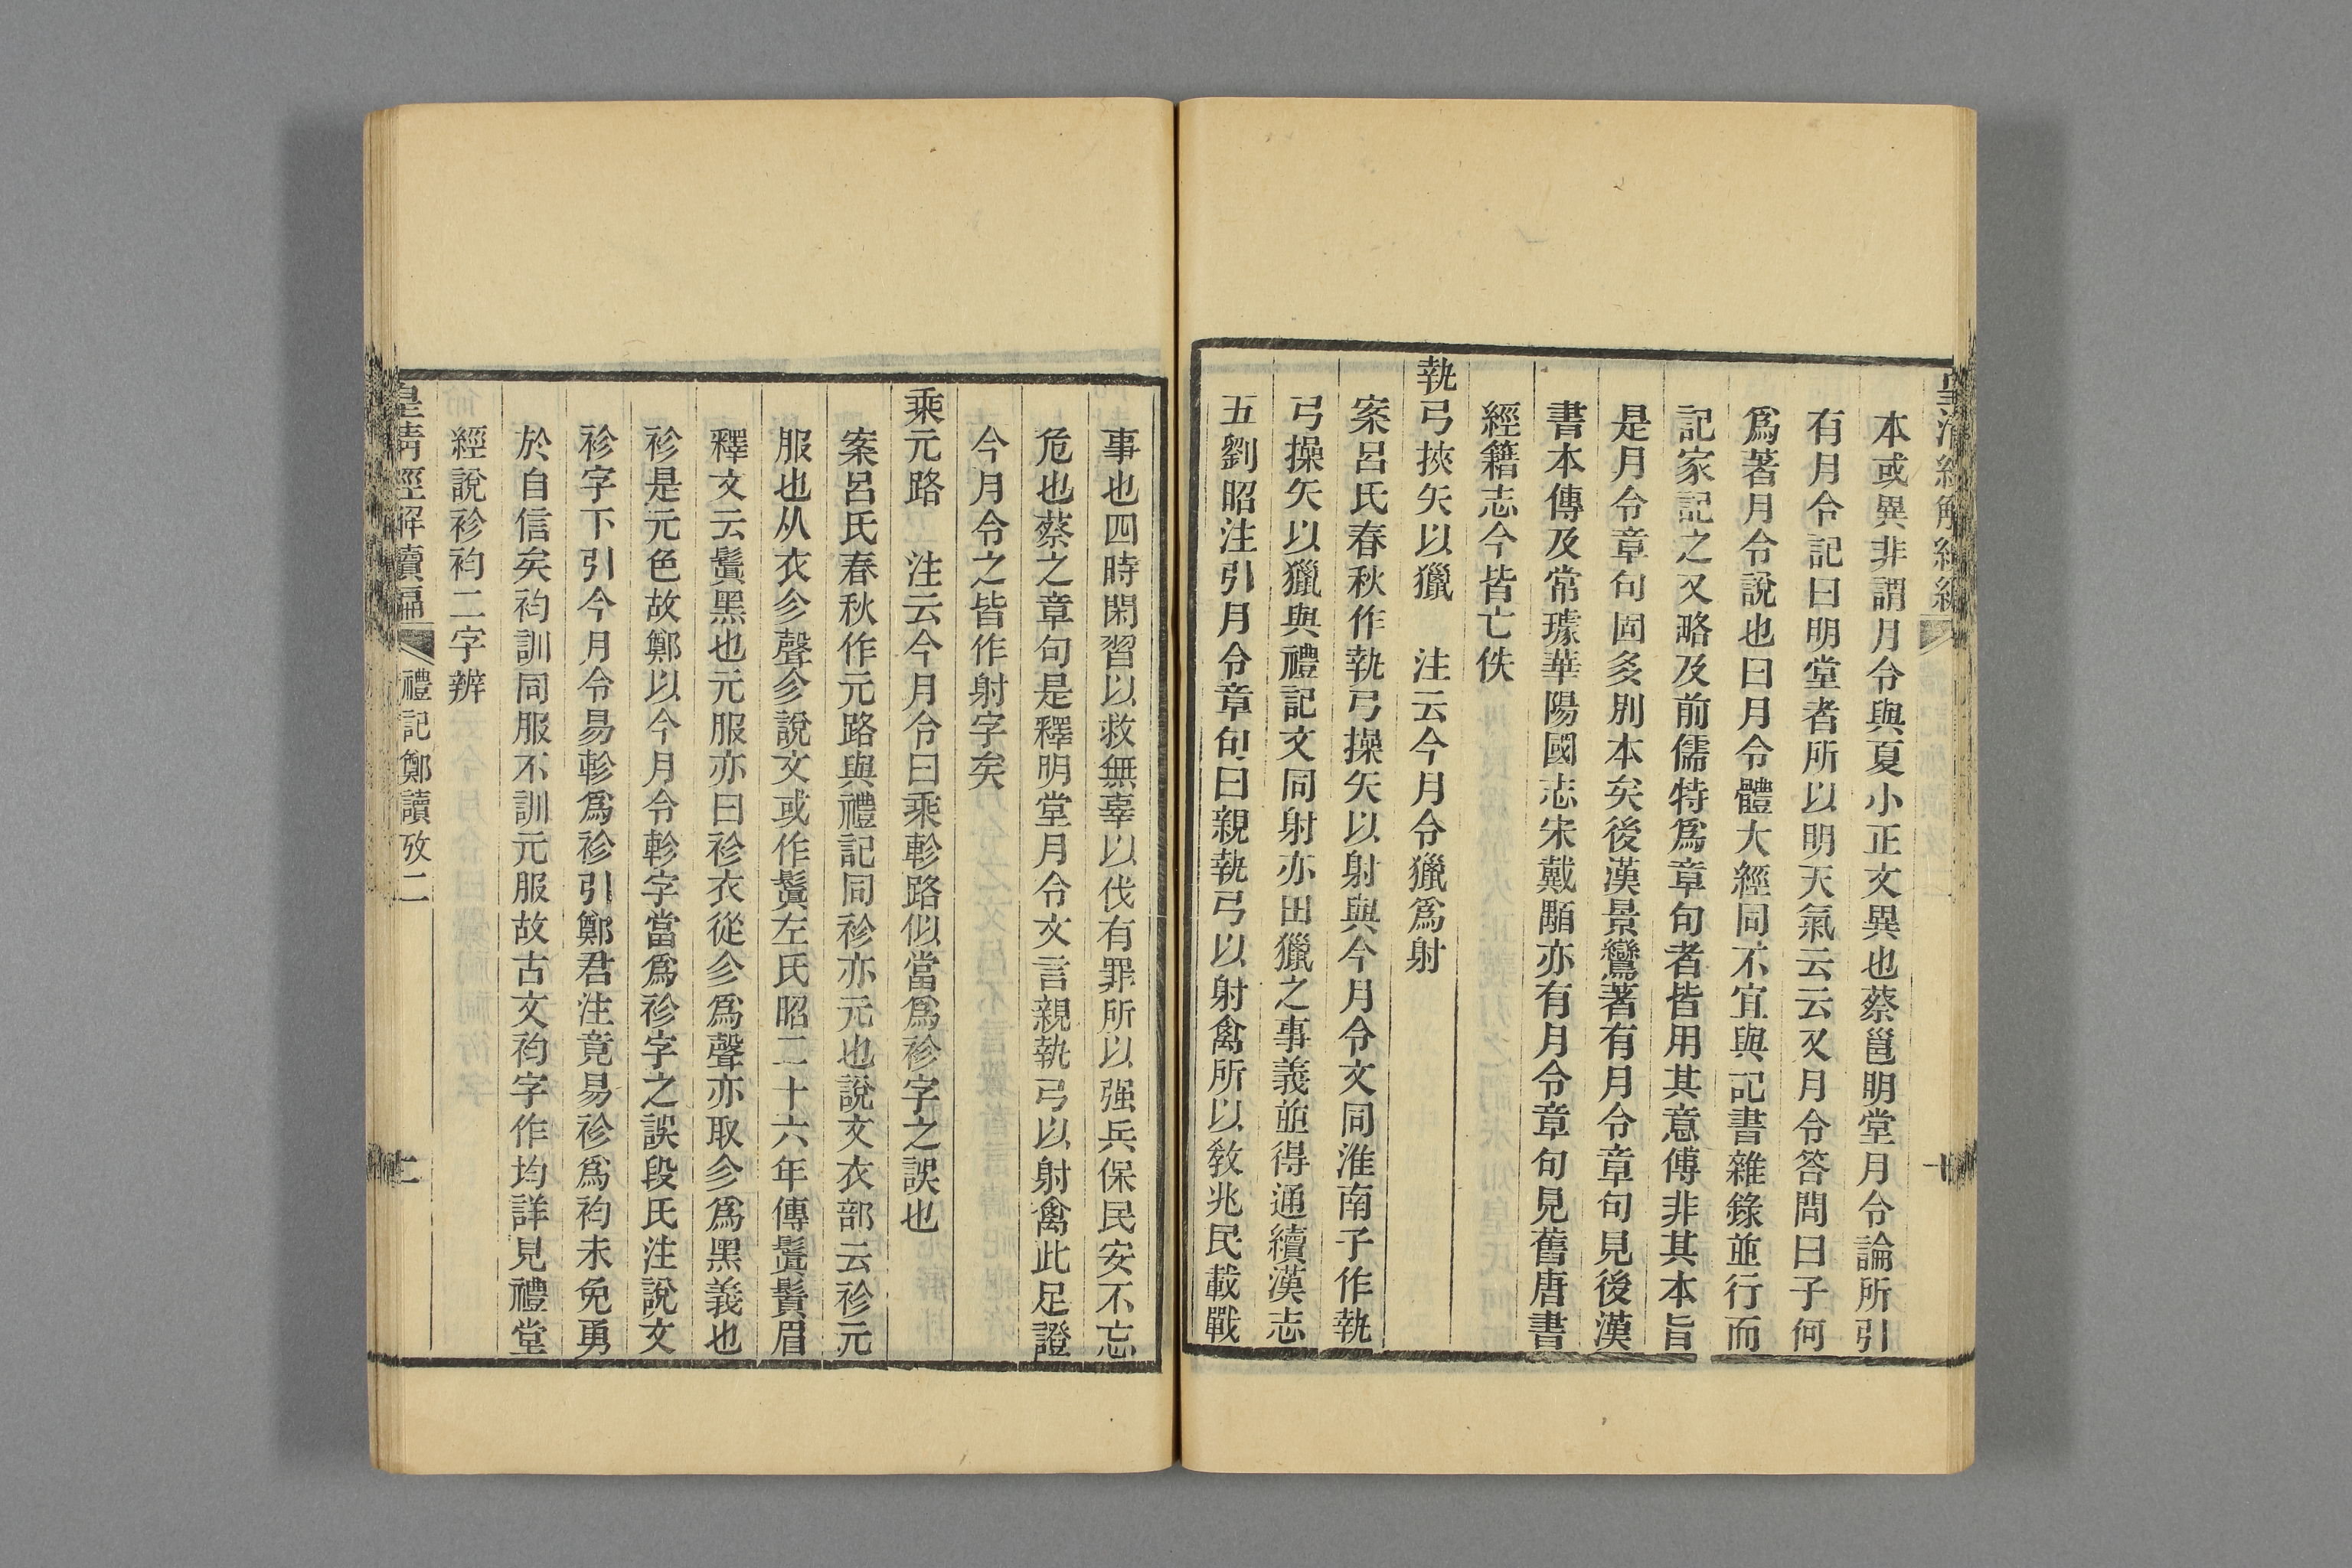 本或異非謂月令與夏小正文異也蔡邕明堂月令論所引
有月令記曰明堂者所以明天氣云云又月令答問曰子何
爲著月令說也曰月令體大經同不宜與記書雜錄並行而
記家記之又略及前儒特爲章句者皆用其意傳非其本旨
是月令章句固多別本矣後漢景鸞著有月令章句見後漢
書本傳及常璩華陽國志宋戴顒亦有月令章句見舊唐書
經籍志今皆亡佚
執弓挾矢以獵　注云今月令獵爲射
案呂氏春秋作執弓操矢以射與今月令文同淮南子作執
弓操矢以獵與禮記文同射亦田獵之事義並得通續漢志
五劉昭注引月令章句曰親執弓以射禽所以敎兆民載戰
事也四時閑習以救無辜以伐有罪所以强兵保民安不忘
危也蔡之章句是釋明堂月令文言親執弓以射禽此足證
今月令之皆作射字矣
乘元路　注云今月令曰乘軫路似當爲袗字之誤也
案呂氏春秋作元路與禮記同袗亦元也說文衣部云袗元
服也从衣㐱聲㐱說文或作鬒左氏昭二十六年傳鬒鬚眉
釋文云鬒黑也元服亦曰袗衣從㐱爲聲亦取㐱爲黑義也
袗是元色故鄭以今月令軫字當爲袗字之誤段氏注說文
袗字下引今月令易軫爲袗引鄭君注竟易袗爲袀未免勇
於自信矣袀訓同服不訓元服故古文袀字作均詳見禮堂
經說袗袀二字辨
皇清經解續編　禮記鄭讀攷二